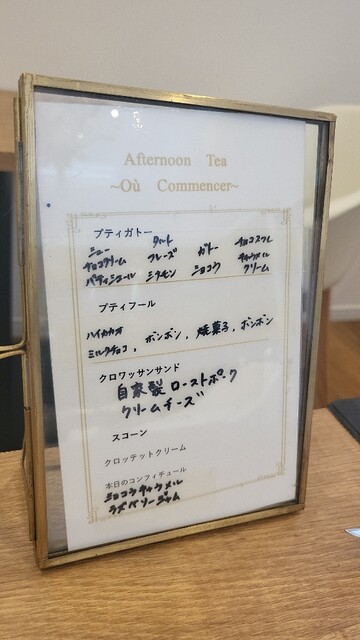 Afternoon Tea
~Où Commencer~
プティガトー
シュー タルト ガトー チョコスフレ
チョコクリーム フレーズ ショコラ キャラメル
パティシエール シナモン クリーム
プティフール
ハイカカオ
ミルクチョコ、ボンボン、焼菓子、ボンボン
クロワッサンサンド
自家製ローストポーク
クリームチーズ
スコーン
クロッテットクリーム
本日のコンフィチュール
ショコラキャラメル
ラズベリージャム